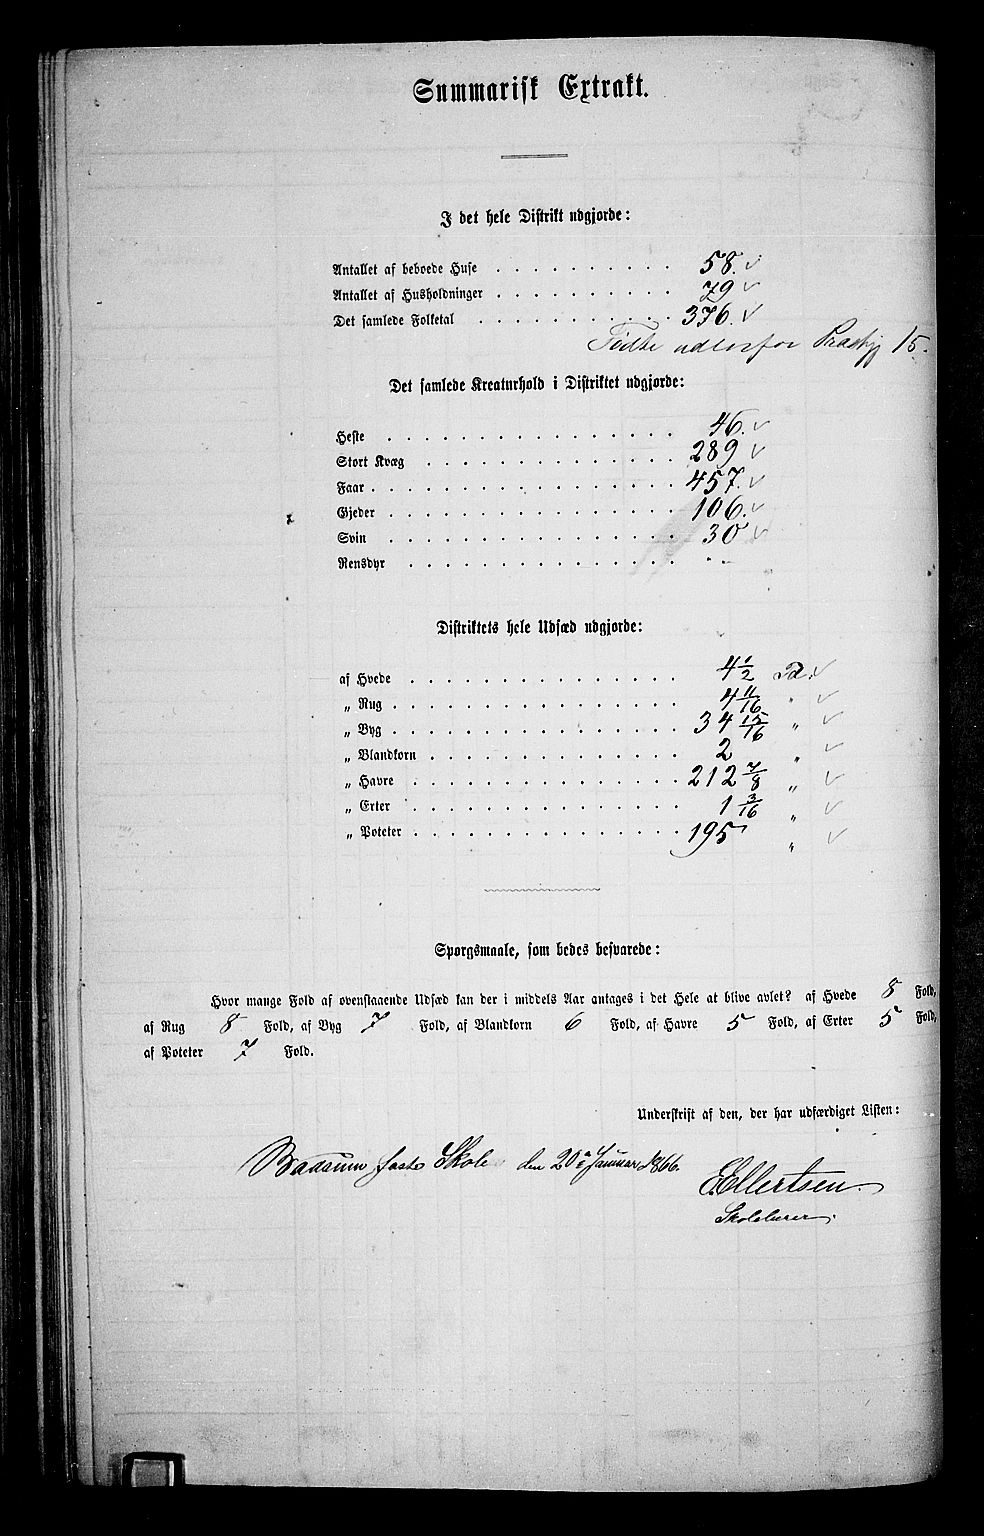 Summarisk Extrakt.
I det hele Distrikt udgjorde:
Antallet af beboede Huse . . . . . . . . . . 58.
Antallet af Husholdninger . . . . . . . . . . 79
Det samlede Folketal . . . . . . . . . . . 376.
Fødte udenfor Præstgj 15.
Det samlede Kreaturhold i Distriktet udgjorde:
Heste . . . . . . . . . . . . . . . . 46.
Stort Kvæg . . . . . . . . . . . . . . 289
Faar . . . . . . . . . . . . . . . . . 457.
Gjeder . . . . . . . . . . . . . . . . 106.
Svin . . . . . . . . . . . . . . . . 30
Rensdyr . . . . . . . . . . . . . . . " "
Distriktets hele Udsæd udgjorde:
af Hvede . . . . . . . . . . . . . . 4 1/2 Td.
„ Rug . . . . . . . . . . . . . . . 4 11/16 "
„ Byg . . . . . . . . . . . . . . . 34 15/16 "
„ Blandkorn . . . . . . . . . . . . . 2 "
„ Havre . . . . . . . . . . . . . . 212 7/8 "
„ Erter . . . . . . . . . . . . . . 1 3/16 "
„ Poteter . . . . . . . . . . . . . . 195 "
Sporgsmaale, som bedes besvarede:
Hvor mange Fold af ovenstaaende Udsæd kan der i middels Aar antages i det Hele at blive avlet? af Hvede 8 Fold,
af Rug 8 Fold, af Byg 7 Fold, af Blandkorn 6 Fold, af Havre 5 Fold, af Erter 5 Fold,
af Poteter 7 Fold.
Underskrift af den, der har udfærdiget Listen:
faste Skole den 20de Januar 1866.
E. Ellertsen.
Skolelærer.